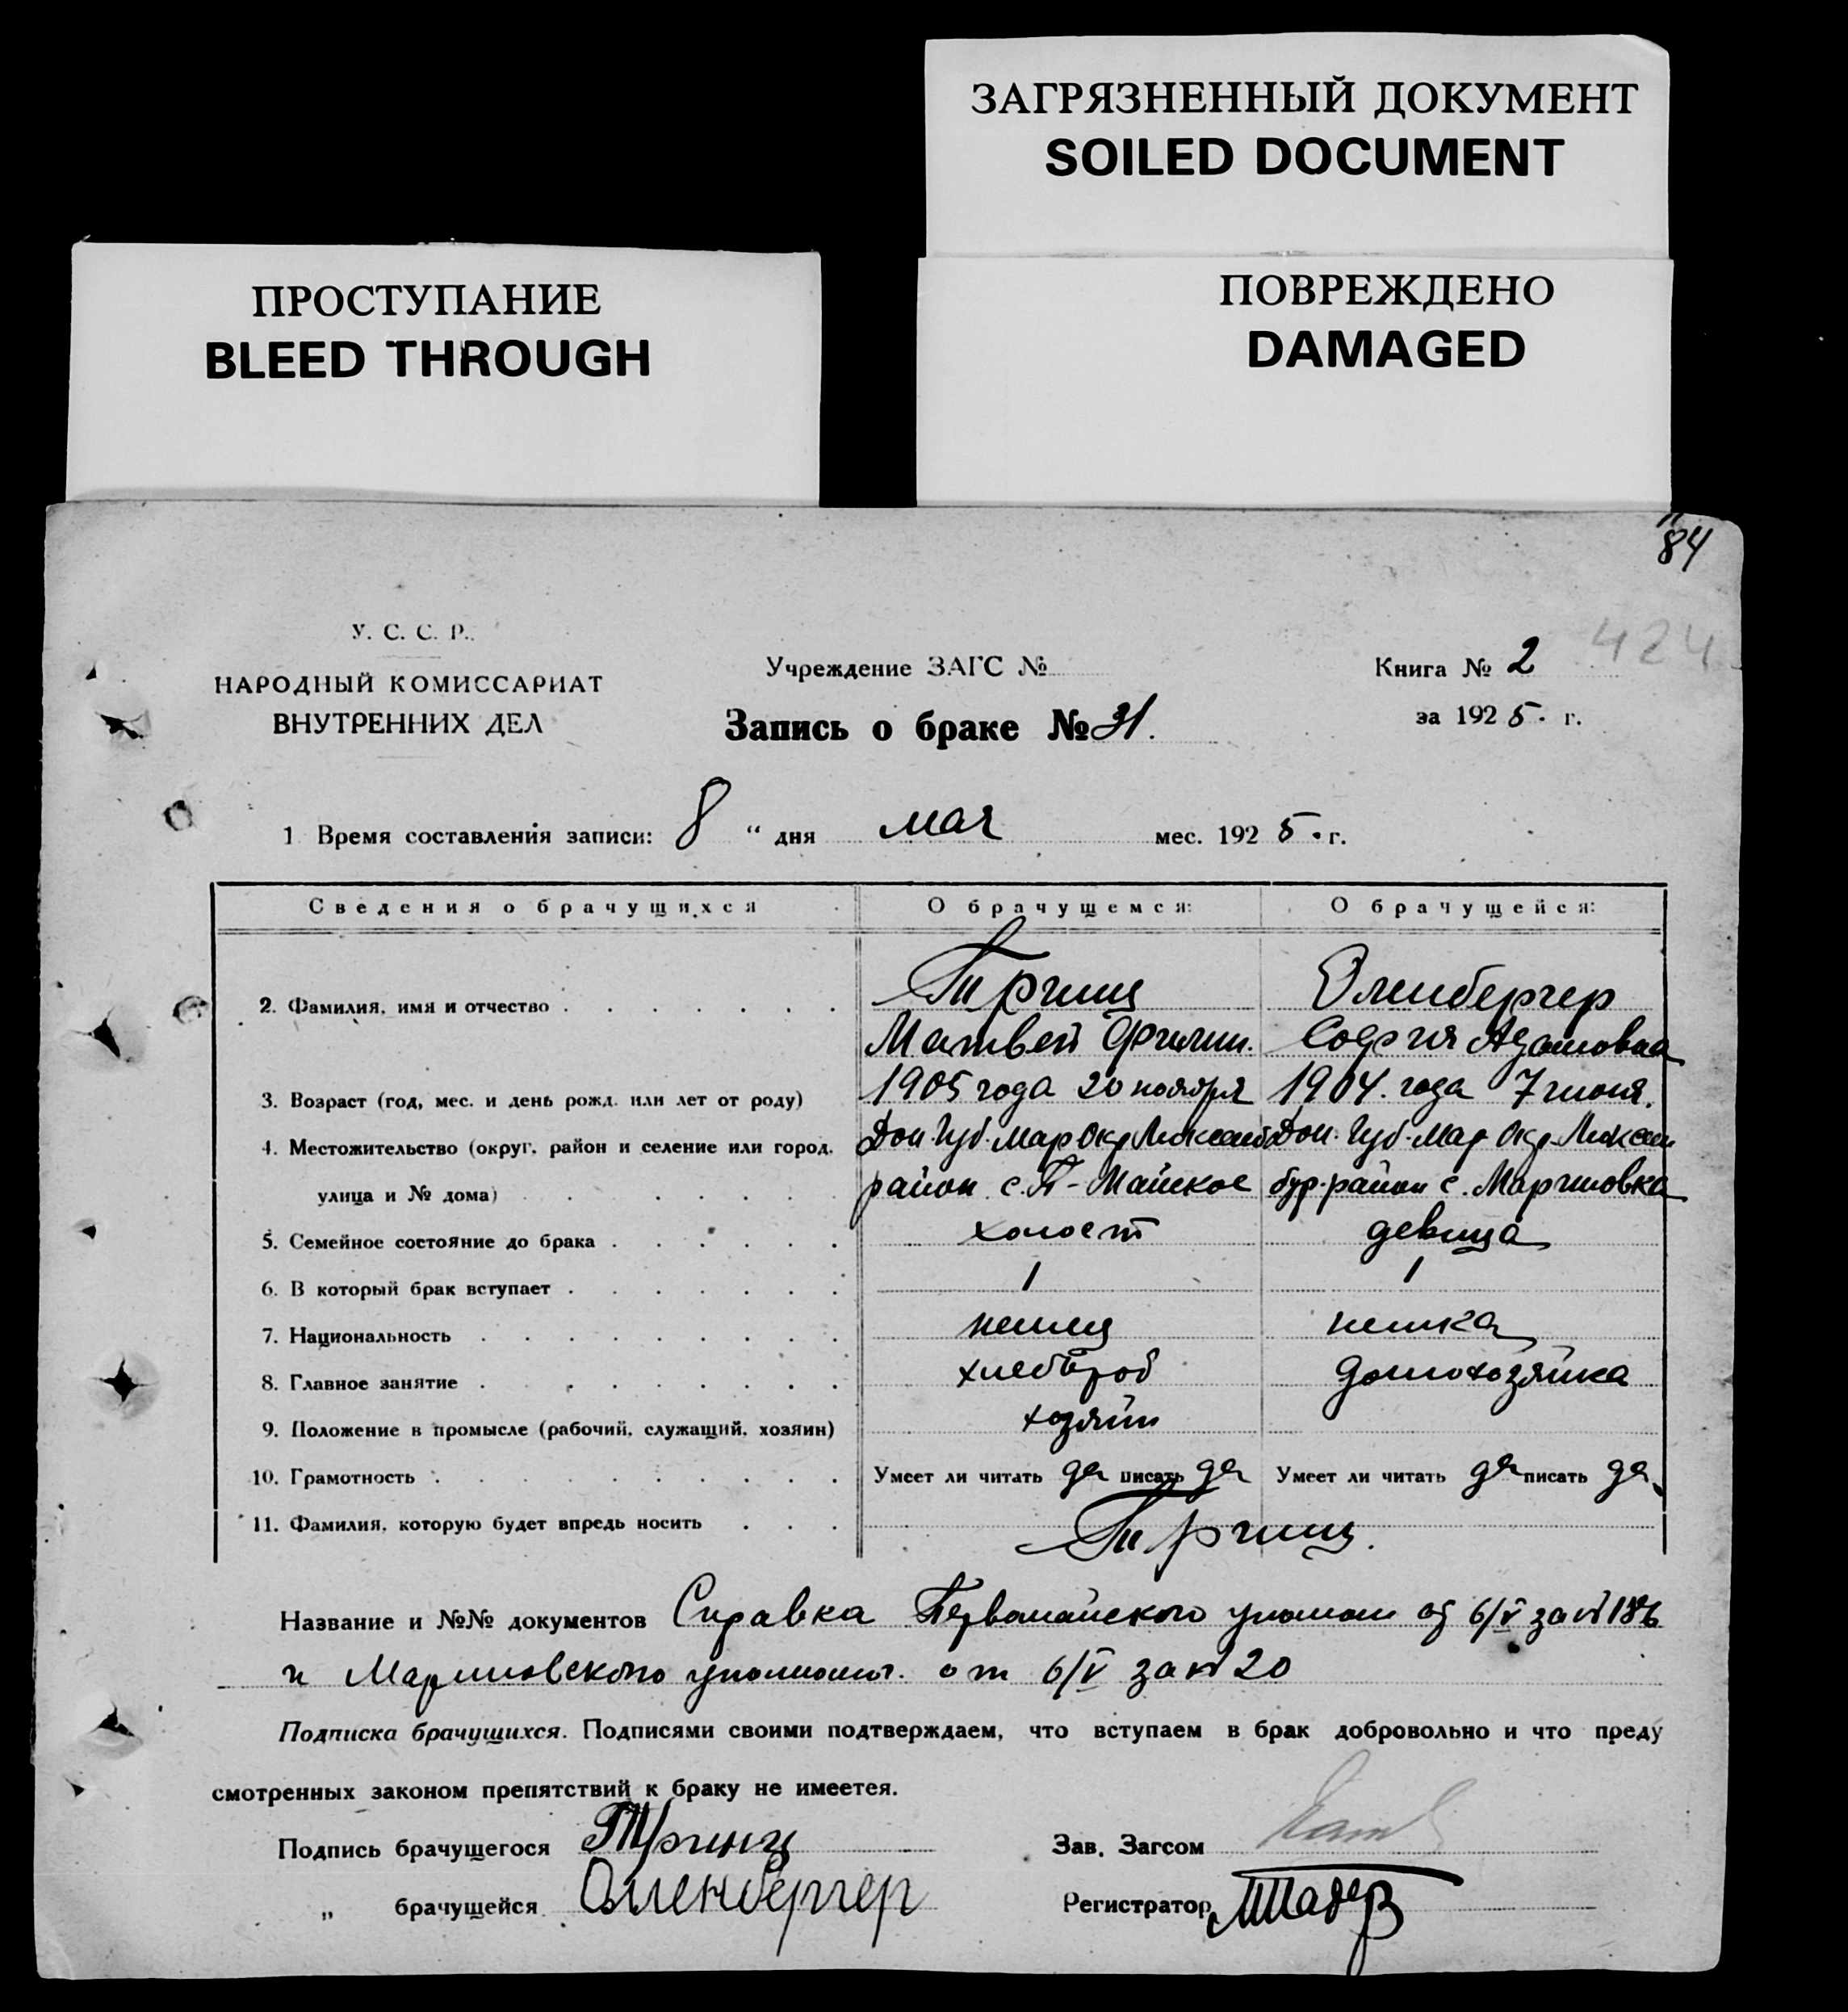 ЗАГРЯЗНЕННЫЙ ДОКУМЕНТ
SOILED DOCUMENT
ПРОСТУПАНИЕ
BLEED THROUGH
ПОВРЕЖДЕНО
DAMAGED
84
424
У. С. С. Р.
НАРОДНЫЙ КОМИССАРИАТ
ВНУТРЕННИХ ДЕЛ
Учреждение ЗАГС №
Книга № 2
Запись о браке № 31.
за 1925. г.
1 Время составления записи: 8 “ дня мая мес. 1925. г.
Сведения о брачущихся О брачущемся: О брачущейся:
2. Фамилия, имя и отчество Принц Оленбергер
Матвей Филип. София Адамовна
3. Возраст (год, мес. и день рожд. или лет от роду) 1905 года 20 ноября 1904. года 7 июня.
4. Местожительство (округ, район и селение или город, Дон. Губ. Мар Окр Люксемб Дон. Губ. Мар Окр. Люксем
улица и № дома) район с. П-Майское бур. район с. Мариновка
5. Семейное состояние до брака холост девица
6. В который брак вступает 1 1
7. Национальность немец немка
8. Главное занятие хлебороб домохозяйка
9. Положение в промысле (рабочий, служащий, хозяин) хозяин
10. Грамотность Умеет ли читать да писать да Умеет ли читать да писать да
11. Фамилия, которую будет впредь носить Принц.
Название и №№ документов Справка Первомайского уполном от 6/V за № 186
и Мариновского уполномоч. от 6/V за № 20
Подписка брачущихся. Подписями своими подтверждаем, что вступаем в брак добровольно и что преду
смотренных законом препятствий к браку не имеется.
Подпись брачущегося Принц Зав. Загсом
„ брачущейся Оленбергер Регистратор